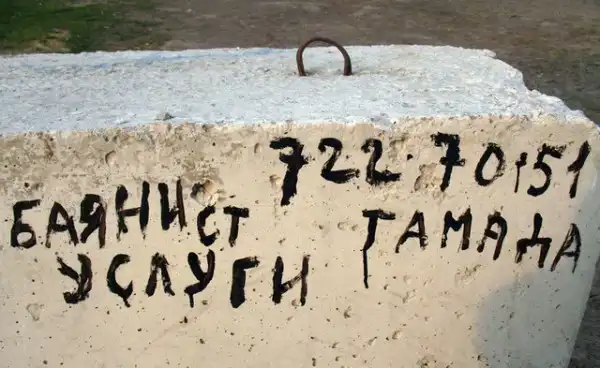 722-70-51
БАЯНИСТ ТАМАДА
УСЛУГИ